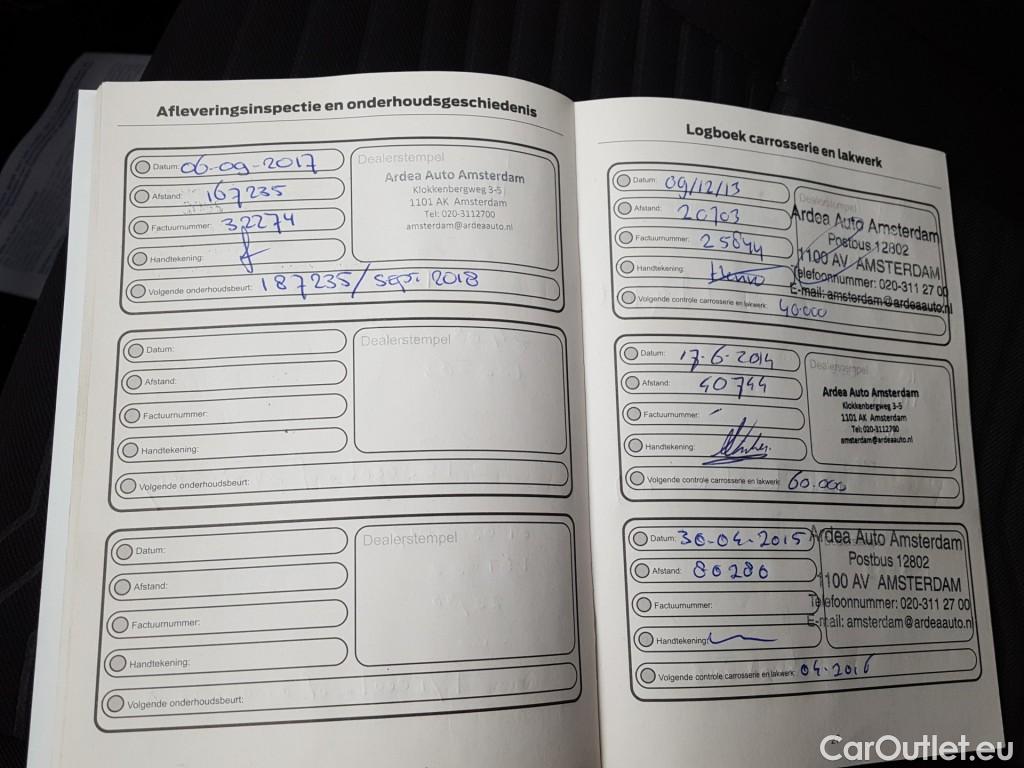 Afleveringsinspectie en onderhoudsgeschiedenis
Datum: 06-09-2017
Afstand: 167235
Factuurnummer: 32274
Handtekening:
Volgende onderhoudsbeurt: 187235/Sept. 2018
Dealerstempel
Ardea Auto Amsterdam
Klokkenbergweg 3-5
1101 AK Amsterdam
Tel: 020-3112700
amsterdam@ardeaauto.nl
Datum:
Afstand:
Factuurnummer:
Handtekening:
Volgende onderhoudsbeurt:
Dealerstempel
Datum:
Afstand:
Factuurnummer:
Handtekening:
Volgende onderhoudsbeurt:
Dealerstempel
Logboek carrosserie en lakwerk
Datum: 09/12/13
Afstand: 20703
Factuurnummer: 25644
Handtekening:
Volgende controle carrosserie en lakwerk: 40.000
Dealerstempel
Ardea Auto Amsterdam
Postbus 12802
1100 AV AMSTERDAM
Telefoonnummer: 020-311 27 00
E-mail: amsterdam@ardeaauto.nl
Datum: 17-6-2014
Afstand: 40744
Factuurnummer:
Handtekening:
Volgende controle carrosserie en lakwerk: 60.000
Dealerstempel
Ardea Auto Amsterdam
Klokkenbergweg 3-5
1101 AK Amsterdam
Tel: 020-3112700
amsterdam@ardeaauto.nl
Datum: 30-04-2015
Afstand: 80280
Factuurnummer:
Handtekening:
Volgende controle carrosserie en lakwerk: 04-2016
Ardea Auto Amsterdam
Postbus 12802
1100 AV AMSTERDAM
Telefoonnummer: 020-311 27 00
E-mail: amsterdam@ardeaauto.nl
CarOutlet.eu